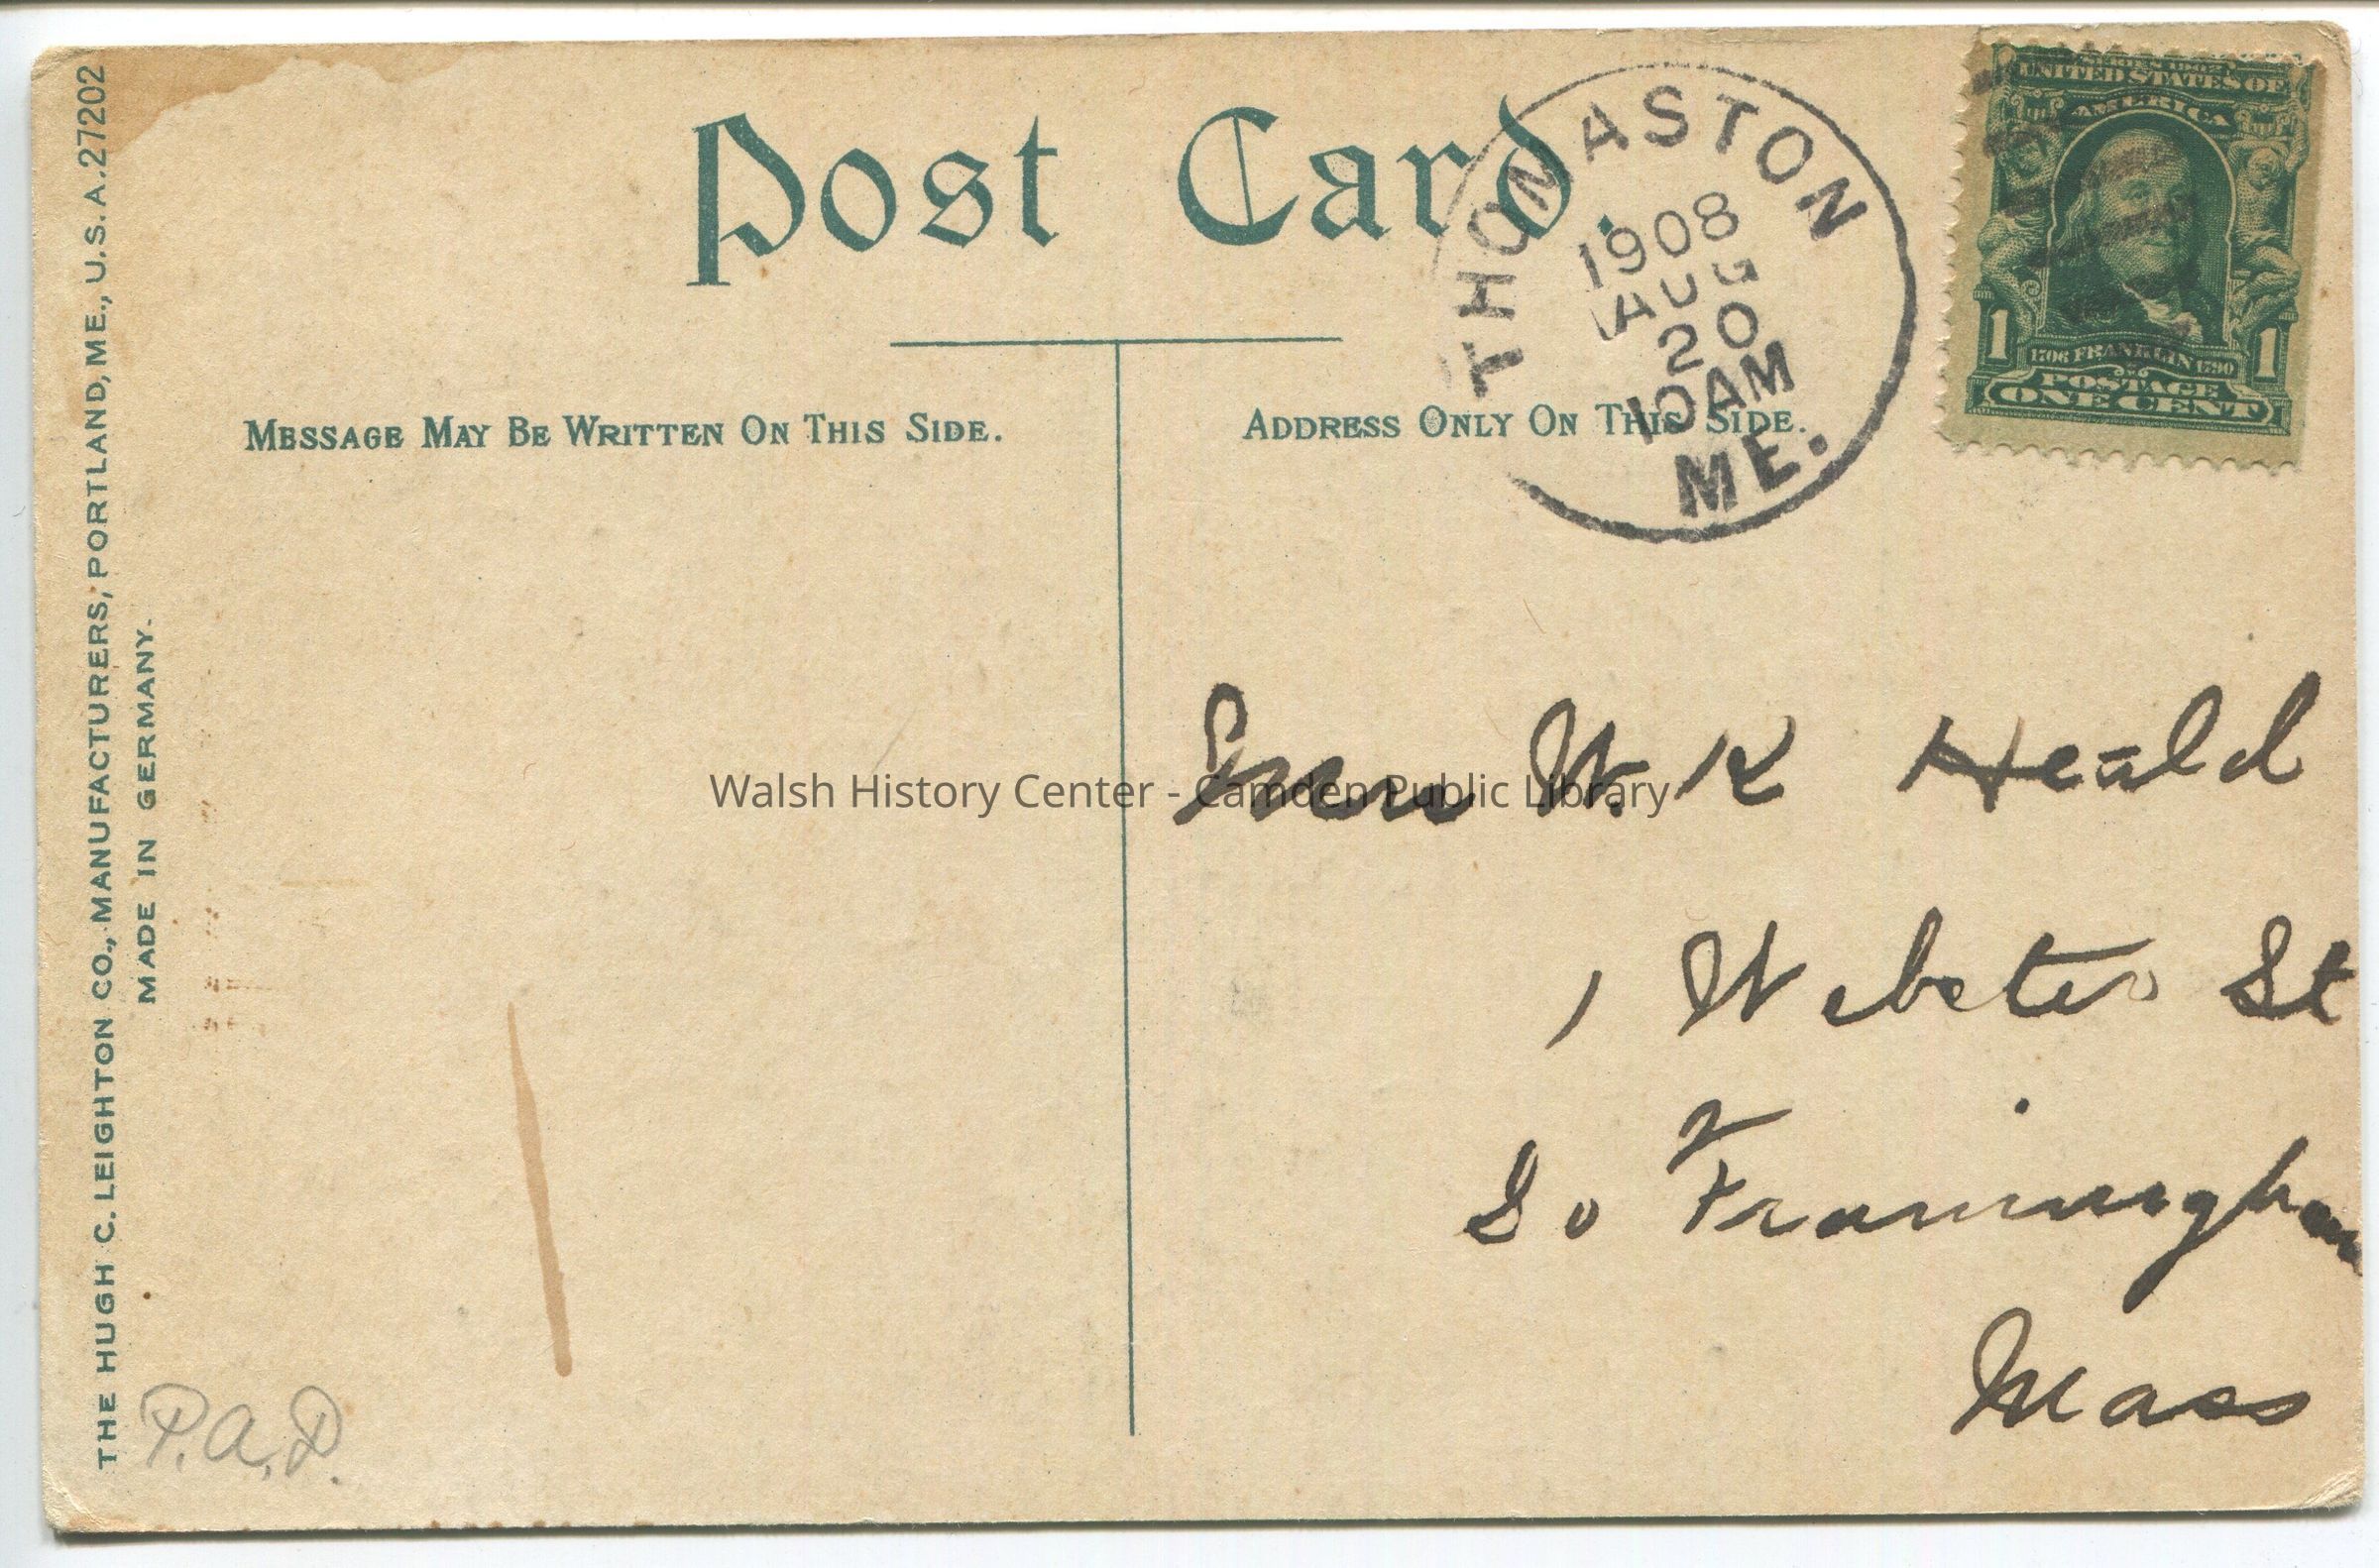 Post Card.
THOMASTON
1908
AUG
20
10AM
ME.
UNITED STATES OF
AMERICA
1 1706 FRANKLIN 1790 1
POSTAGE
ONE CENT
MESSAGE MAY BE WRITTEN ON THIS SIDE.
ADDRESS ONLY ON THIS SIDE.
W. K Heald
1 Webster St
So Framingham
Mass
Walsh History Center - Camden Public Library
THE HUGH C. LEIGHTON CO., MANUFACTURERS, PORTLAND, ME., U.S.A. 27202
MADE IN GERMANY.
P.A.D.